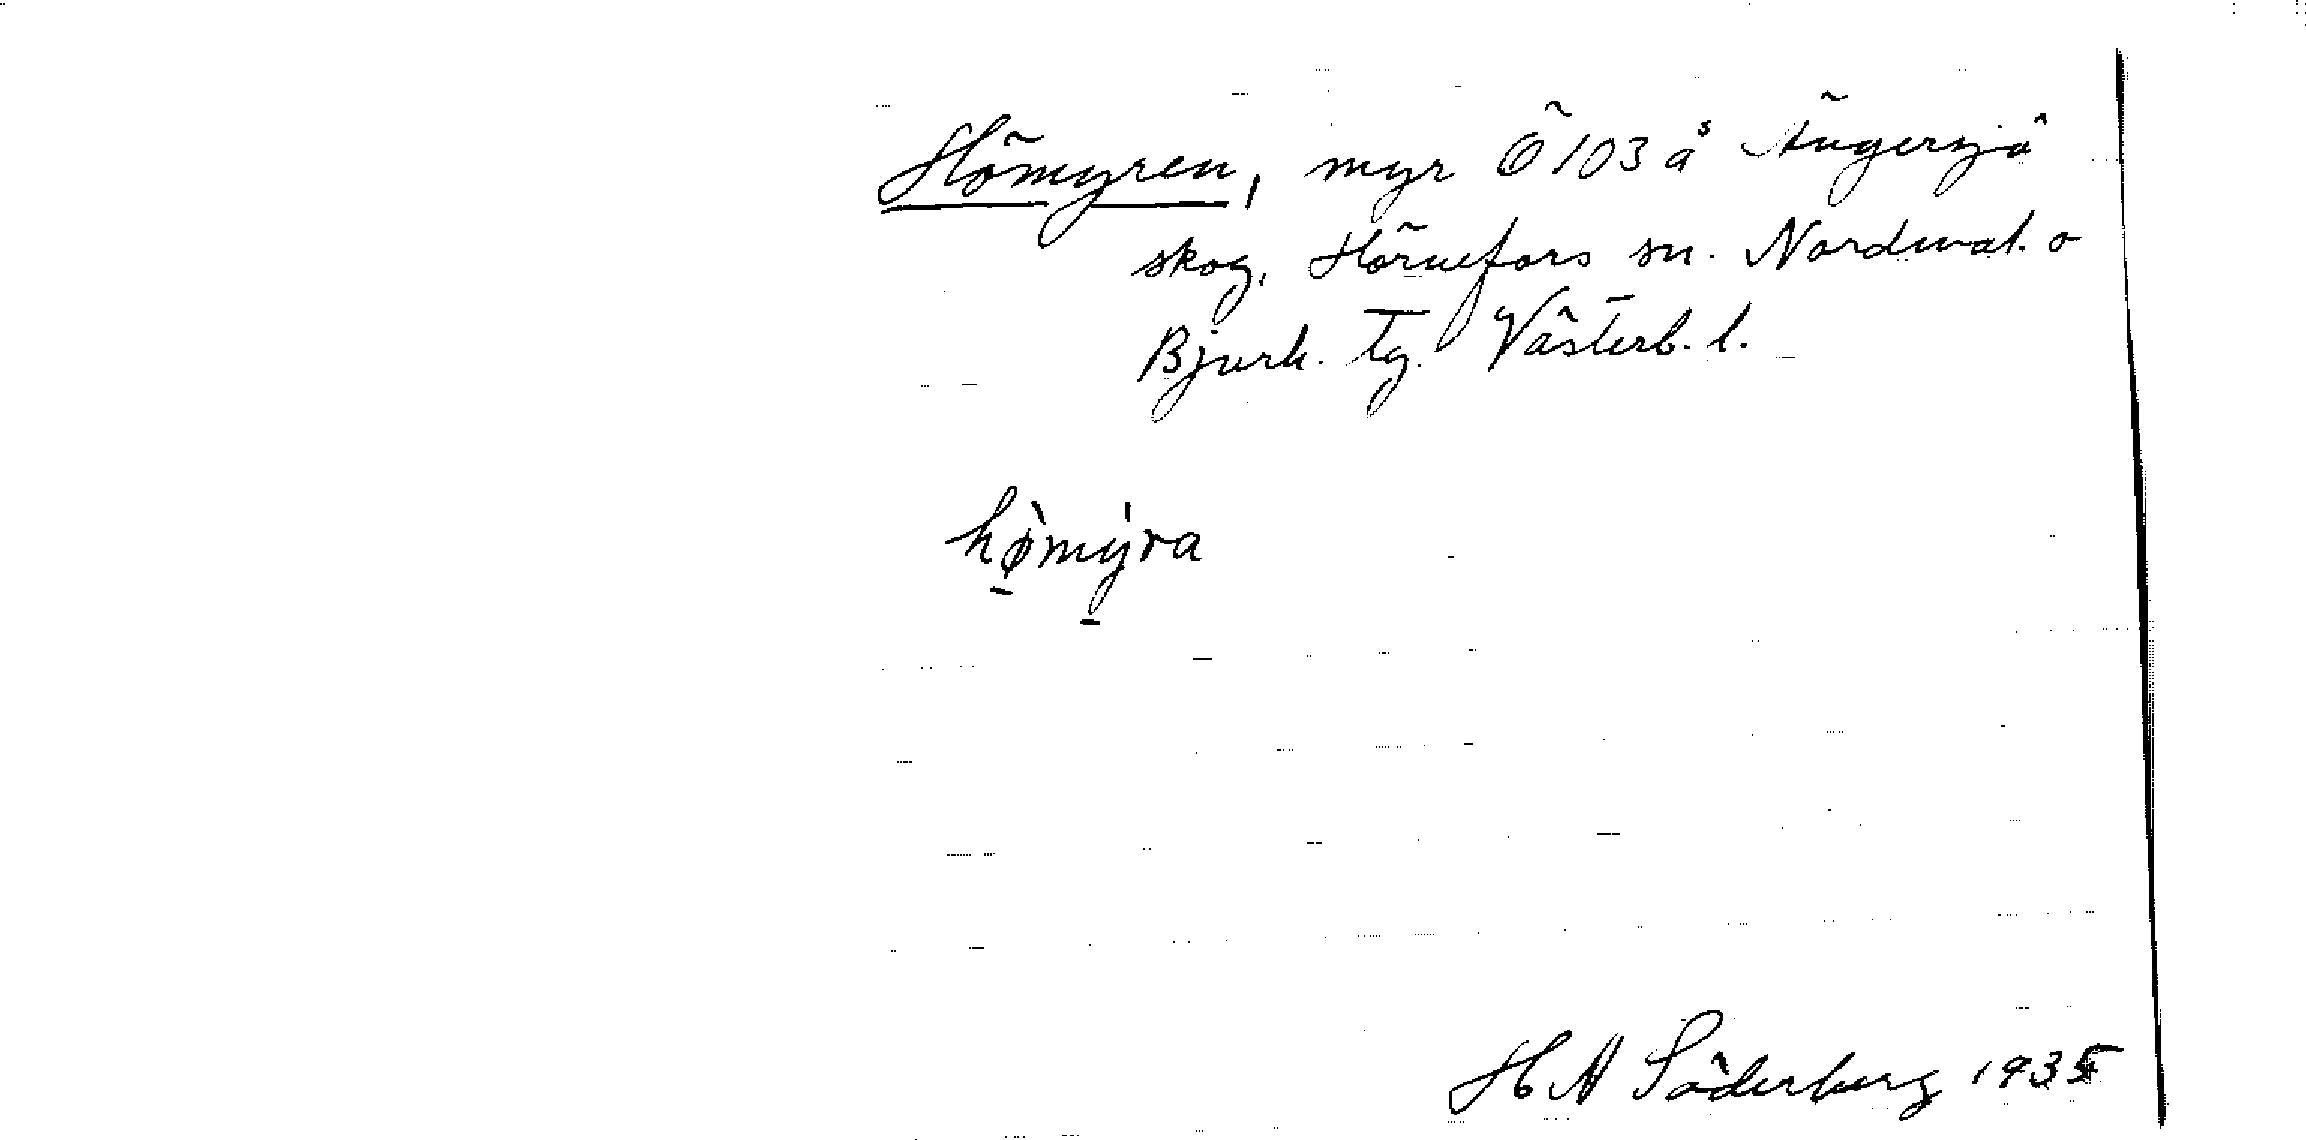 Hömyren, myr Ö 103 å Ängersjö
skog, Hörnefors sn. Nordmal. o
Bjurh. tg. Västerb. l.
hø̀mýra
H A Söderberg 1935